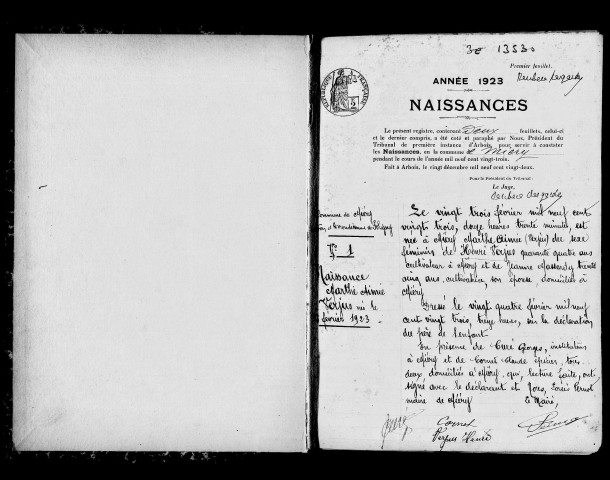 3e 1353
Premier feuillet.
ANNÉE 1923
NAISSANCES
RÉPUBLIQUE FRANÇAISE
Le présent registre, contenant Deux feuillets, celui-ci
et le dernier compris, a été coté et paraphé par Nous, Président du
Tribunal de première instance d'Arbois, pour servir à constater
les Naissances, en la commune de Miéry
pendant le cours de l'année mil neuf cent vingt-trois.
Fait à Arbois, le vingt décembre mil neuf cent vingt-deux.
Pour le Président du Tribunal:
Le Juge,
Commune de Miéry
N° 1
Naissance
Marthe Aimée
Verjus née le
février 1923
Le vingt trois février mil neuf cent
vingt trois, douze heures trente minutes, est
née à Miéry Marthe Aimée (Verjus) du sexe
féminin de Henri Verjus quarante quatre ans
cultivateur à Miéry et de Jeanne trente
cinq ans, cultivatrice, son épouse, domiciliés à
Miéry
Dressé le vingt quatre février mil neuf
cent vingt trois, treize heures, sur la déclaration
du père de l'enfant.
En présence de Curé Georges, instituteur
à Miéry et de Cornet Claude épicier, tous
deux domiciliés à Miéry, qui, lecture faite, ont
signé avec le déclarant et Nous, Louis
maire de Miéry
Le Maire,
Curé
Cornet
Verjus Henri